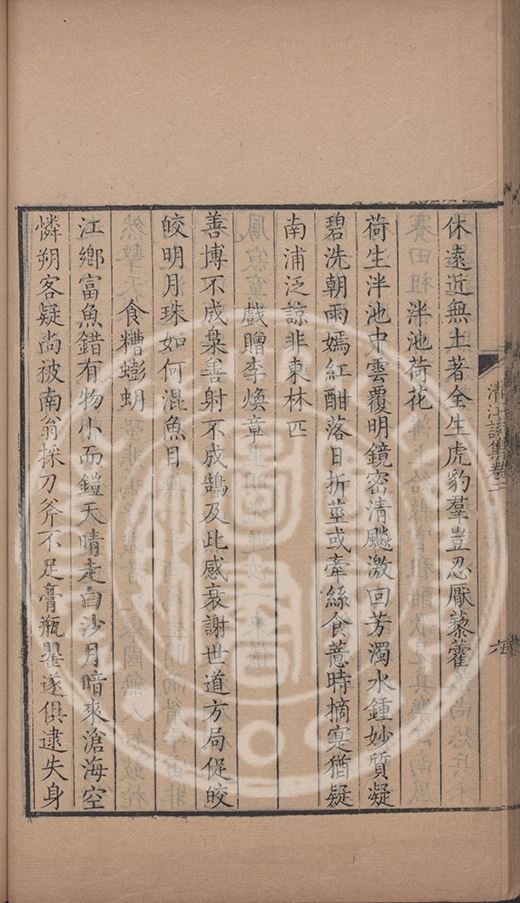 休遠近無土著全生虎豹羣豈忍厭藜藿
泮池荷花
荷生泮池中雲覆明鏡密清飈激回芳濁水鍾妙質凝
碧洗朝雨嫣紅酣落日折莖或牽絲食薏時摘寔猶疑
南浦泛諒非東林匹
戲贈李煥章
善博不成梟善射不成鵠及此感衰謝世道方局促皎
皎明月珠如何混魚目
食糟蟛蚏
江鄉富魚錯有物小而鎧天晴走白沙月暗來滄海空
憐朔客疑尚被南翁採刀斧不足膏瓶罌遂俱逮失身
清江詩集卷三
六